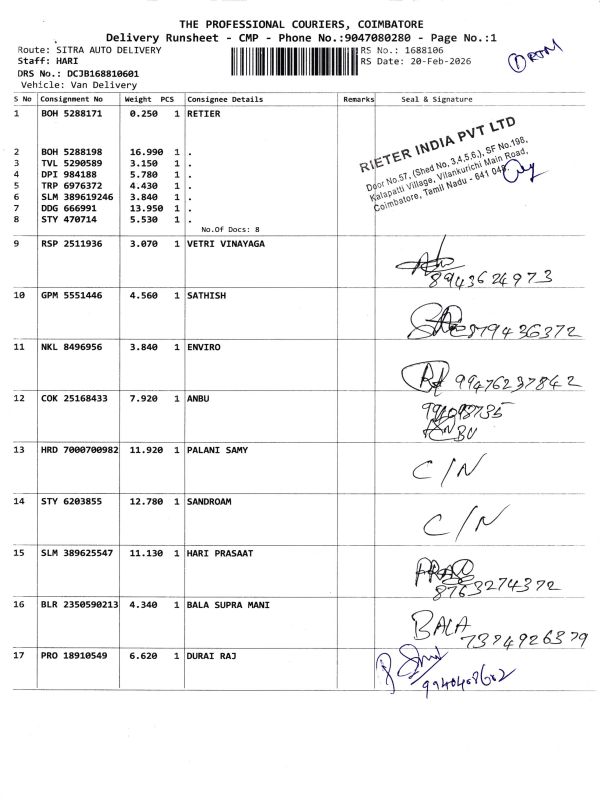 THE PROFESSIONAL COURIERS, COIMBATORE
Delivery Runsheet - CMP - Phone No.:9047080280 - Page No.:1
Route: SITRA AUTO DELIVERY RS No.: 1688106
Staff: HARI RS Date: 20-Feb-2026
DRS No.: DCJB168810601
Vehicle: Van Delivery
S No Consignment No Weight PCS Consignee Details Remarks Seal & Signature
1 BOH 5288171 0.250 1 RETIER
RIETER INDIA PVT LTD
Door No.57, (Shed No, 3,4,5,6,), SF No.198,
Kalapatti Village, Vilankurichi Main Road,
Coimbatore, Tamil Nadu - 641 048.
2 BOH 5288198 16.990 1 .
3 TVL 5290589 3.150 1 .
4 DPI 984188 5.780 1 .
5 TRP 6976372 4.430 1 .
6 SLM 389619246 3.840 1 .
7 DDG 666991 13.950 1 .
8 STY 470714 5.530 1 .
No.Of Docs: 8
9 RSP 2511936 3.070 1 VETRI VINAYAGA
8943624973
10 GPM 5551446 4.560 1 SATHISH
879436372
11 NKL 8496956 3.840 1 ENVIRO
99476237842
12 COK 25168433 7.920 1 ANBU
13 HRD 7000700982 11.920 1 PALANI SAMY
C/N
14 STY 6203855 12.780 1 SANDROAM
C/N
15 SLM 389625547 11.130 1 HARI PRASAAT
8763274372
16 BLR 2350590213 4.340 1 BALA SUPRA MANI
BALA
7374926379
17 PRO 18910549 6.620 1 DURAI RAJ